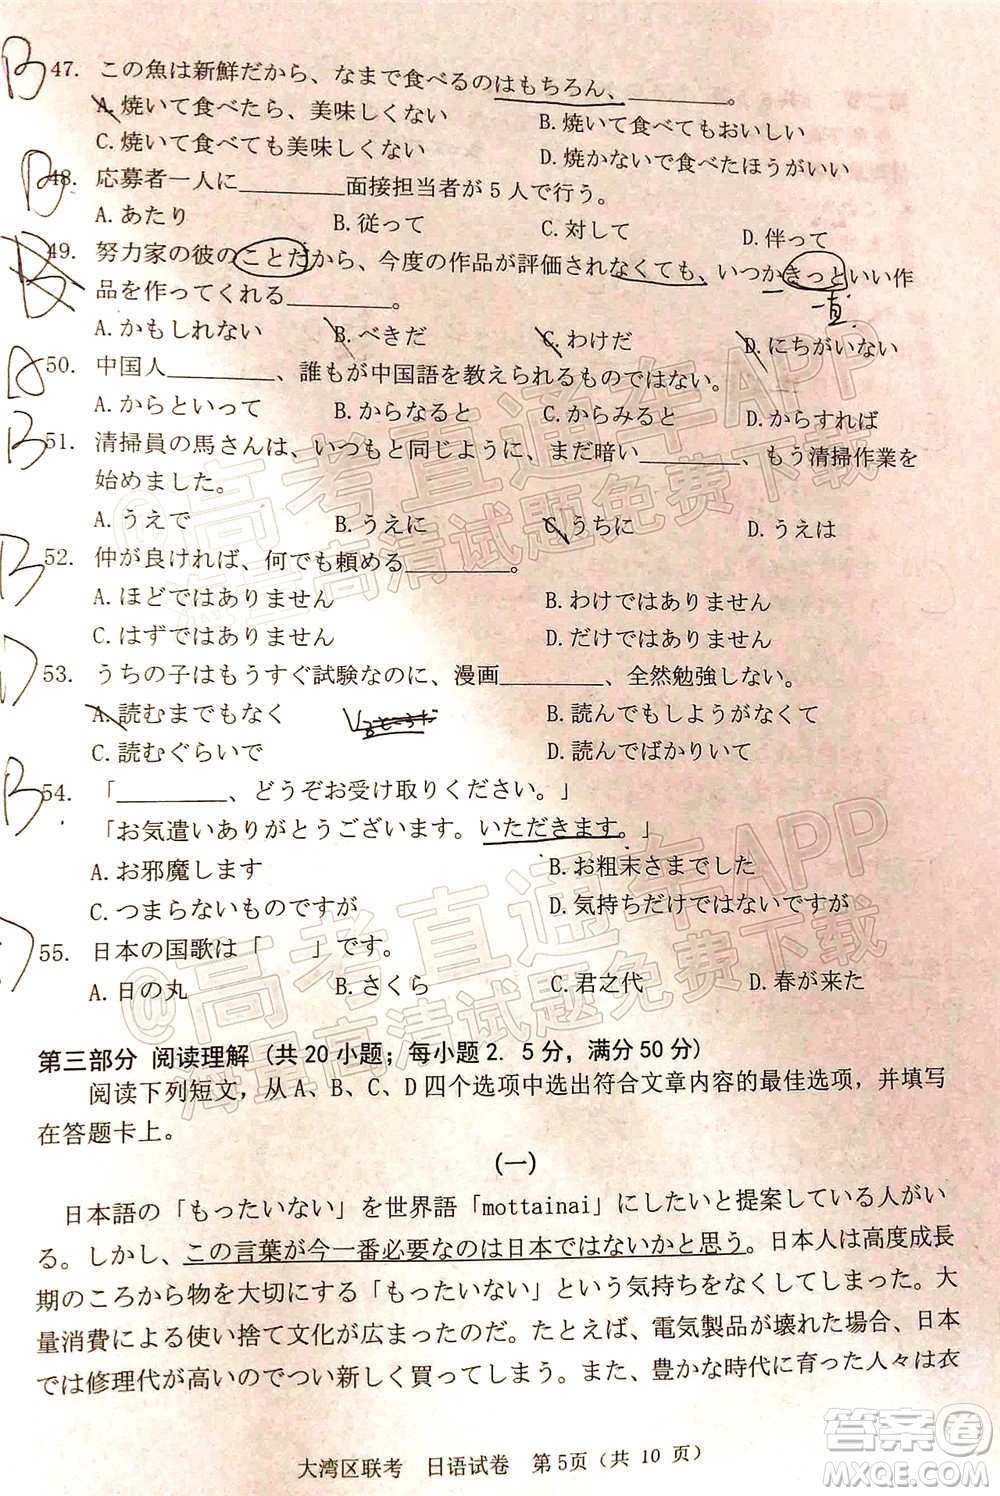 B 47. この魚は新鮮だから、なまで食べるのはもちろん、________。
A.焼いて食べたら、美味しくない B.焼いて食べてもおいしい
C.焼いて食べても美味しくない D.焼かないで食べたほうがいい
B 48. 応募者一人に________面接担当者が5人で行う。
A.あたり B.従って C.対して D.伴って
49. 努力家の彼のことだから、今度の作品が評価されなくても、いつかきっといい作
品を作ってくれる________。
一直
A.かもしれない B.べきだ C.わけだ D.にちがいない
A 50. 中国人________、誰もが中国語を教えられるものではない。
A.からといって B.からなると C.からみると D.からすれば
B 51. 清掃員の馬さんは、いつもと同じように、まだ暗い________、もう清掃作業を
始めました。
A.うえで B.うえに C.うちに D.うえは
B 52. 仲が良ければ、何でも頼める________。
A.ほどではありません B.わけではありません
C.はずではありません D.だけではありません
D 53. うちの子はもうすぐ試験なのに、漫画________、全然勉強しない。
A.読むまでもなく B.読んでもしようがなくて
C.読むぐらいで D.読んでばかりいて
B 54. 「________、どうぞお受け取りください。」
「お気遣いありがとうございます。いただきます。」
A.お邪魔します B.お粗末さまでした
C.つまらないものですが D.気持ちだけではないですが
55. 日本の国歌は「　　」です。
A.日の丸 B.さくら C.君之代 D.春が来た
第三部分 阅读理解（共20小题；每小题2．5分，满分50分）
阅读下列短文，从A、B、C、D四个选项中选出符合文章内容的最佳选项，并填写
在答题卡上。
（一）
日本語の「もったいない」を世界語「mottainai」にしたいと提案している人がい
る。しかし、この言葉が今一番必要なのは日本ではないかと思う。日本人は高度成長
期のころから物を大切にする「もったいない」という気持ちをなくしてしまった。大
量消費による使い捨て文化が広まったのだ。たとえば、電気製品が壊れた場合、日本
では修理代が高いのでつい新しく買ってしまう。また、豊かな時代に育った人々は衣
大湾区联考 日语试卷 第5页（共 10 页）
@高考直通车APP
海量高清试题免费下载
@高考直通车APP
海量高清试题免费下载
答案卷
MXQE.COM